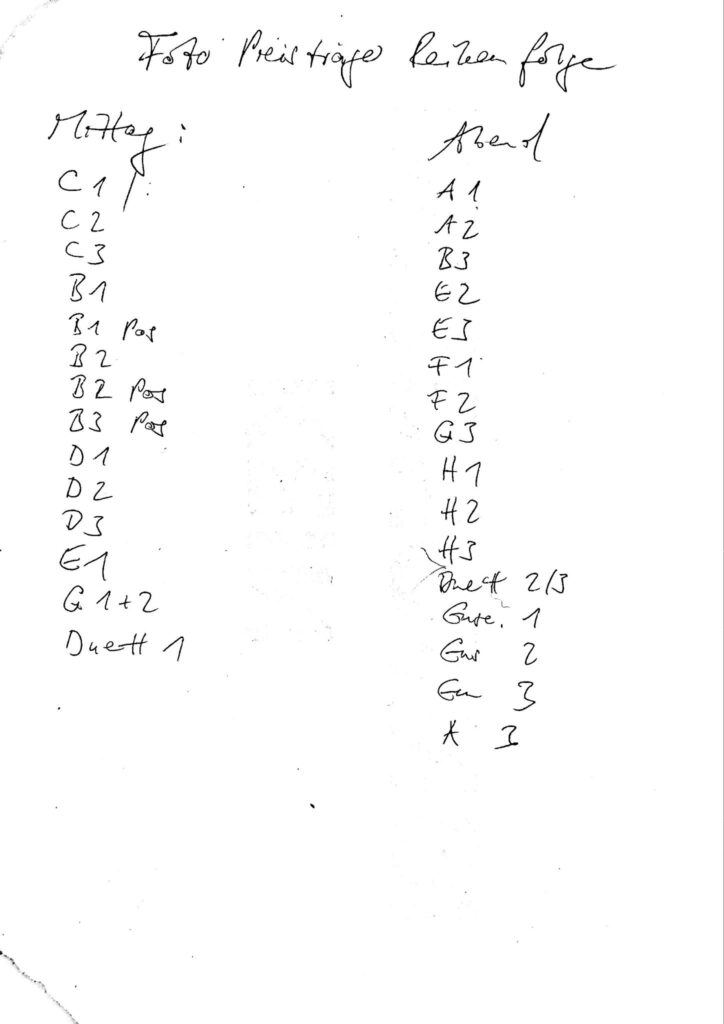 Foto Preisträger Reihenfolge
Mittag:
C1
C2
C3
B1
B1 Pos
B2
B2 Pos
B3 Pos
D1
D2
D3
E1
G 1+2
Duett 1
Abend
A1
A2
B3
E2
E3
F1
F2
G3
H1
H2
H3
Duett 2/3
1
2
3
A 3